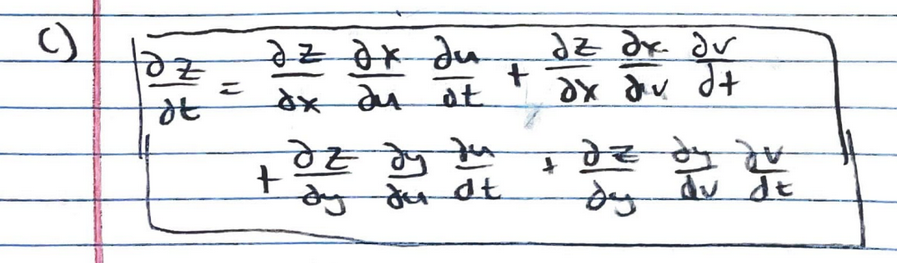 c) ∂z/∂t = ∂z/∂x ∂x/∂u ∂u/∂t + ∂z/∂x ∂x/∂v ∂v/∂t
+ ∂z/∂y ∂y/∂u ∂u/∂t + ∂z/∂y ∂y/∂v ∂v/∂t